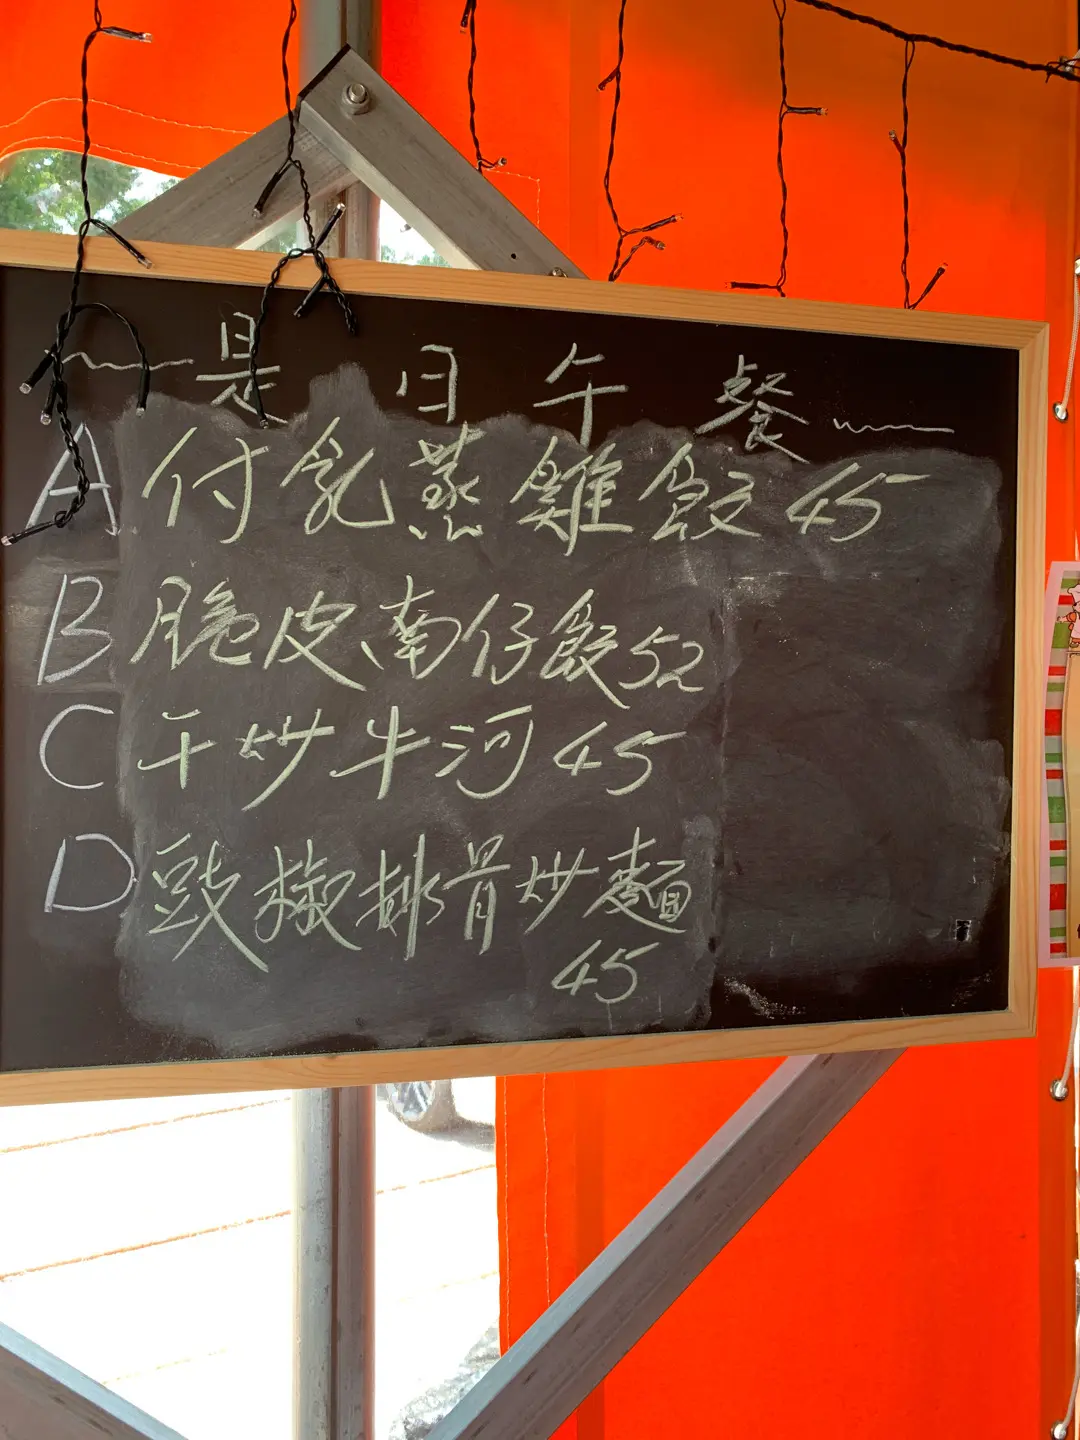 是日午餐
A 付乳蒸雞飯 45
B 脆皮南仔飯 52
C 干炒牛河 45
D 豉椒排骨炒麵
45